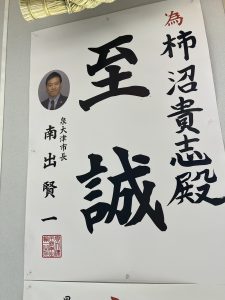 為 柿沼貴志殿
至誠
泉大津市長
南出賢一